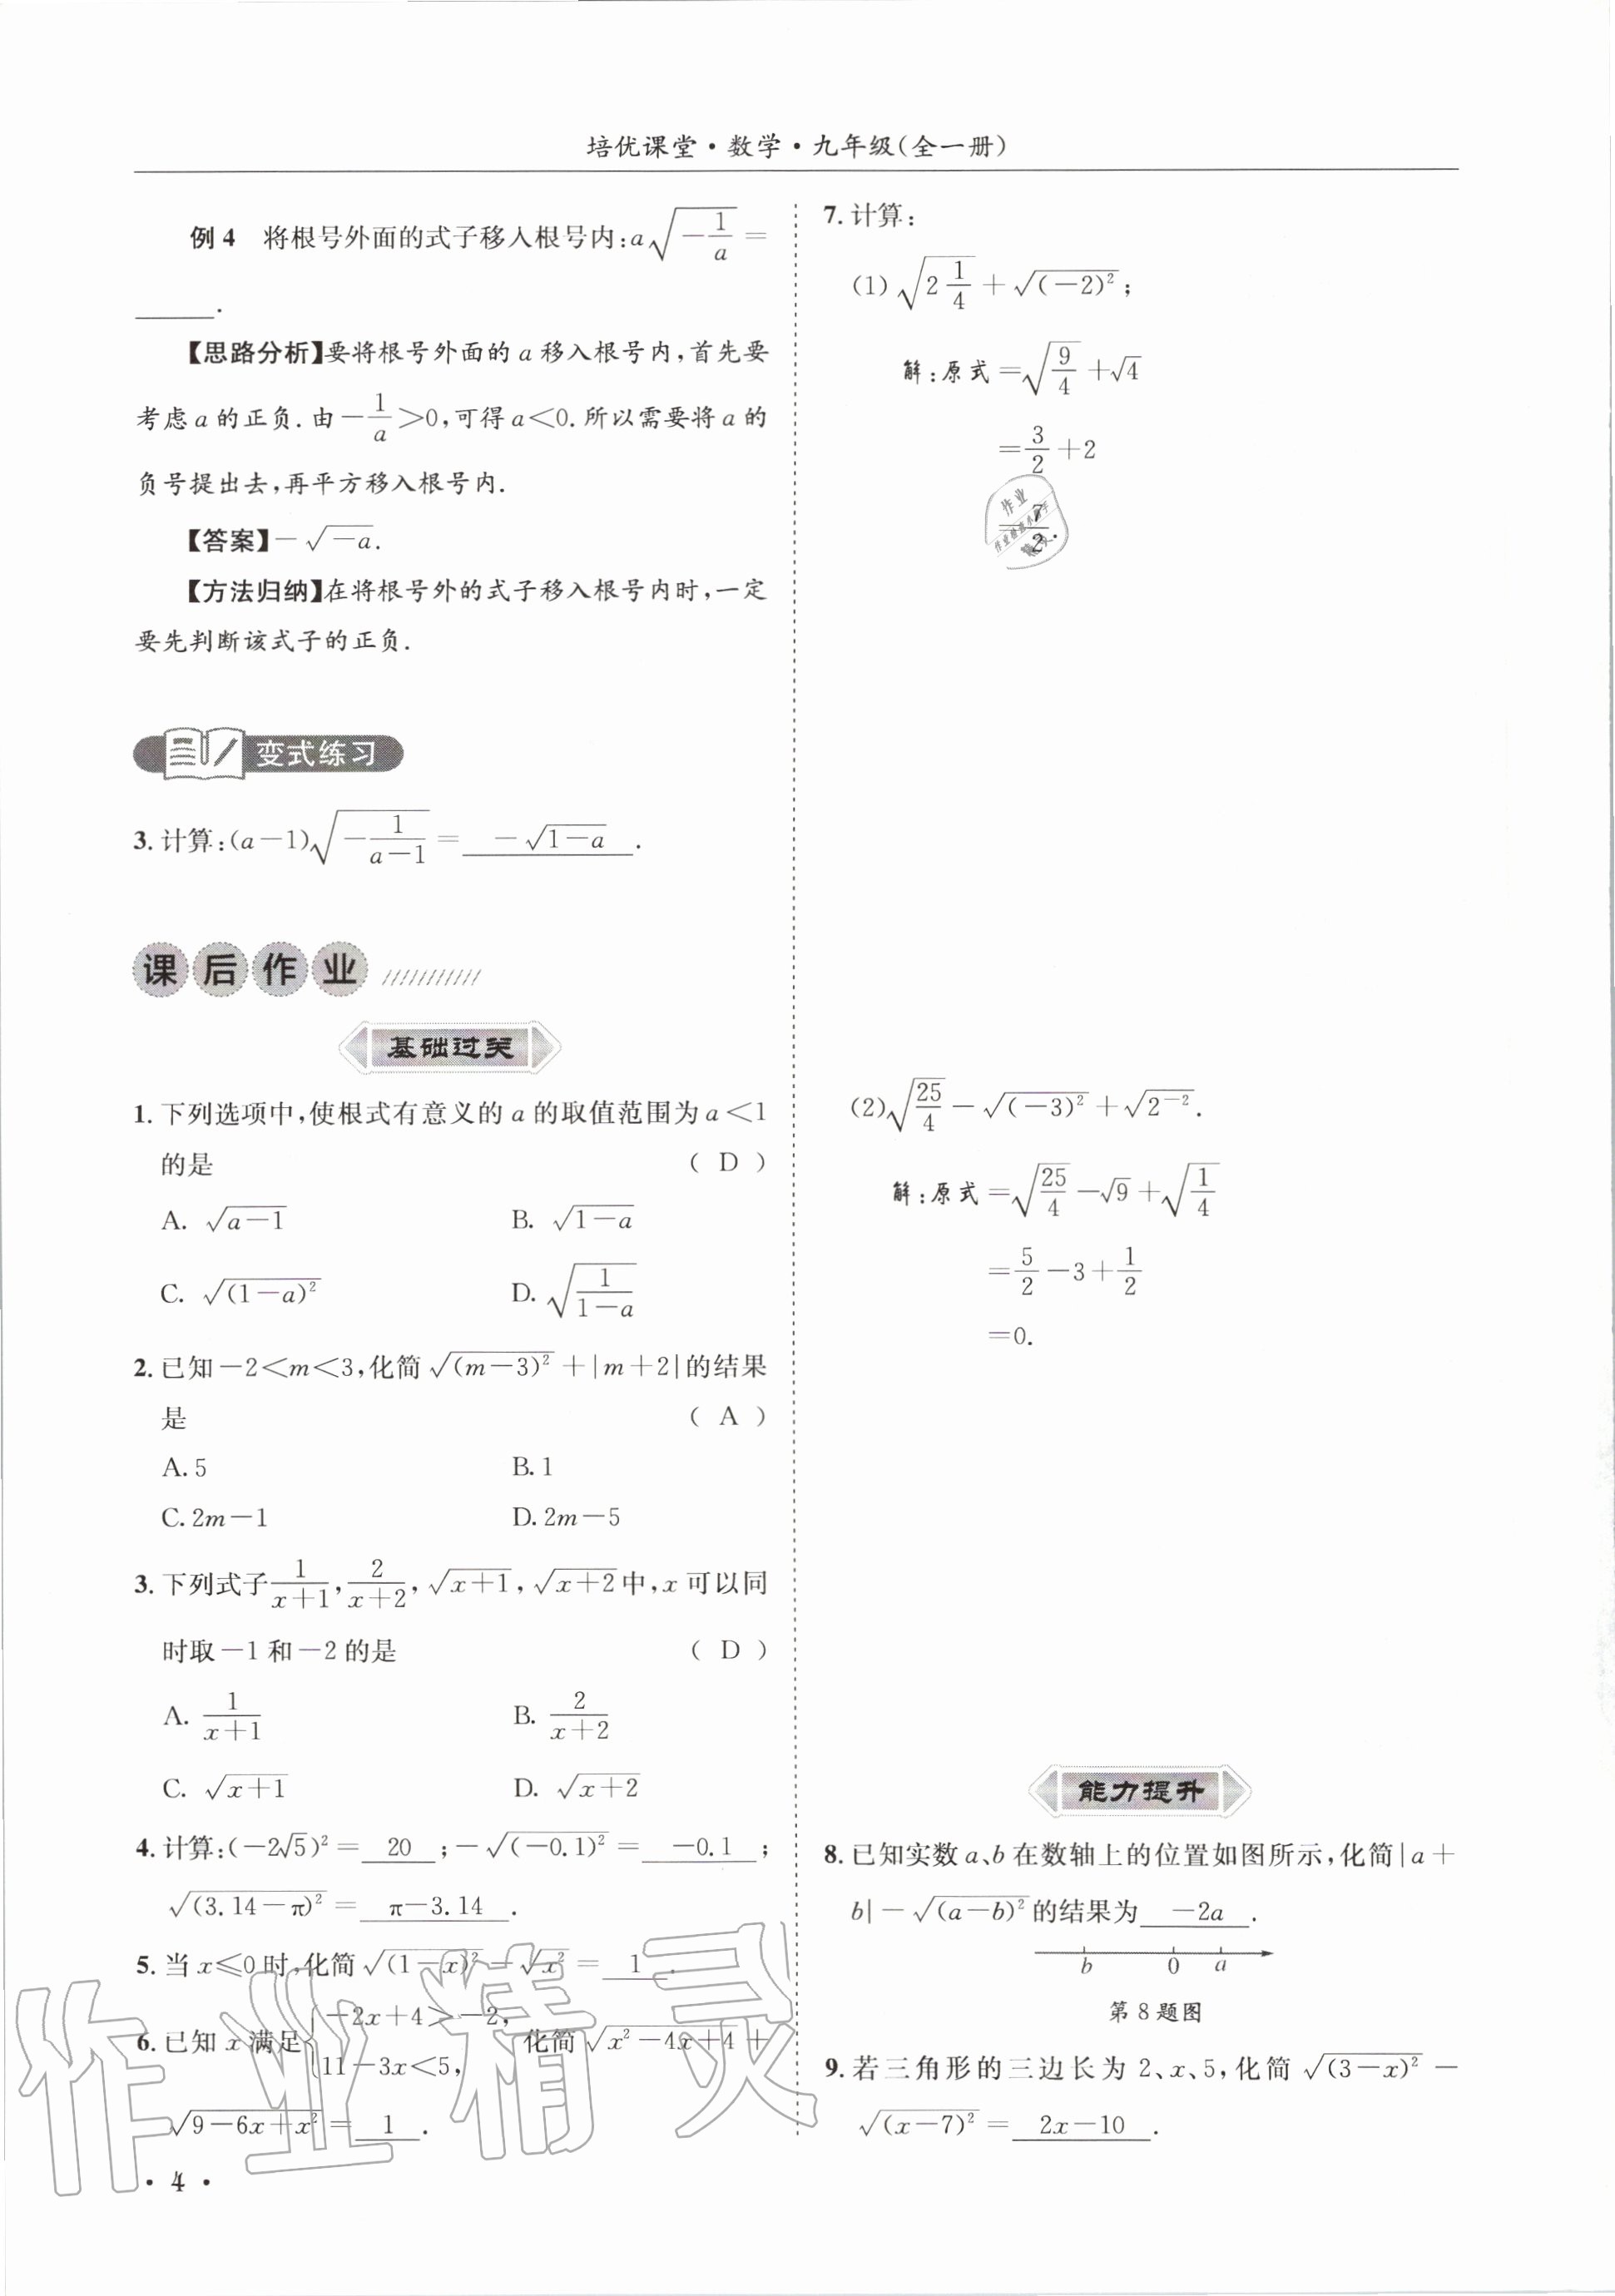 培优课堂·数学·九年级(全一册)
例4 将根号外面的式子移入根号内:a√(-1/a)=
______.
【思路分析】要将根号外面的 a 移入根号内,首先要
考虑 a 的正负.由-1/a>0,可得 a<0.所以需要将 a 的
负号提出去,再平方移入根号内.
【答案】-√(-a).
【方法归纳】在将根号外的式子移入根号内时,一定
要先判断该式子的正负.
变式练习
3.计算:(a-1)√(-1/(a-1))= -√(1-a) .
课后作业
基础过关
1.下列选项中,使根式有意义的 a 的取值范围为 a<1
的是 ( D )
A. √(a-1) B. √(1-a)
C. √((1-a)²) D. √(1/(1-a))
2.已知-2<m<3,化简√((m-3)²)+|m+2|的结果
是 ( A )
A.5 B.1
C.2m-1 D.2m-5
3.下列式子1/(x+1),2/(x+2),√(x+1),√(x+2)中,x 可以同
时取-1和-2的是 ( D )
A. 1/(x+1) B. 2/(x+2)
C. √(x+1) D. √(x+2)
4.计算:(-2√5)²= 20 ;-√((-0.1)²)= -0.1 ;
√((3.14-π)²)= π-3.14 .
5.当 x≤0时,化简√((1-x)²)-√(x²)= 1 .
6.已知 x 满足{-2x+4>-2, 11-3x<5, 化简√(x²-4x+4)+
√(9-6x+x²)= 1 .
·4·
7.计算:
(1)√(2 1/4)+√((-2)²);
解:原式=√(9/4)+√4
=3/2+2
=7/2.
(2)√(25/4)-√((-3)²)+√(2⁻²).
解:原式=√(25/4)-√9+√(1/4)
=5/2-3+1/2
=0.
能力提升
8.已知实数 a、b 在数轴上的位置如图所示,化简|a+
b|-√((a-b)²)的结果为 -2a .
b 0 a
第8题图
9.若三角形的三边长为 2、x、5,化简√((3-x)²)-
√((x-7)²)= 2x-10 .
作业精灵